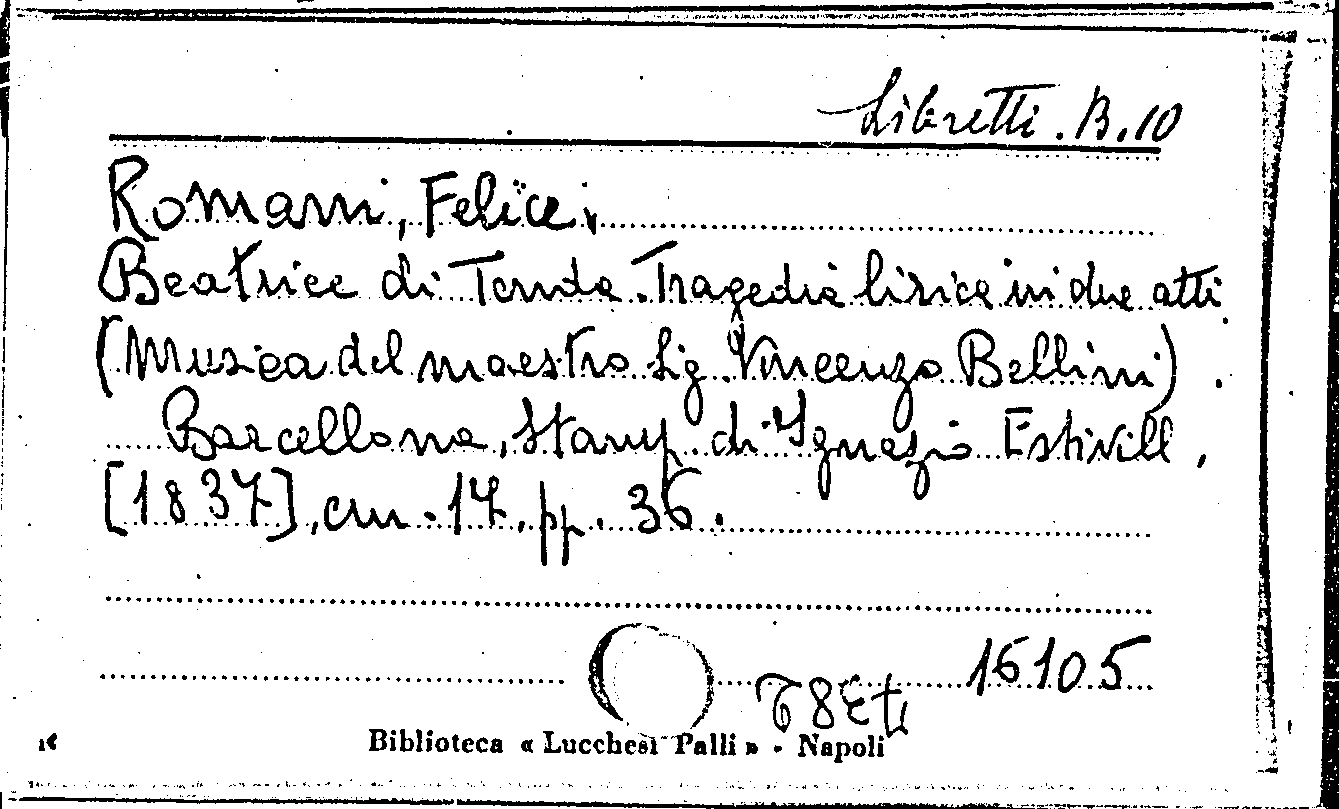 Libretti. B.10
Romani, Felice.
Beatrice di Tenda. Tragedia lirica in due atti.
(Musica del maestro Sig. Vincenzo Bellini).
Barcellona, Stamp. di Ignazio Estivill,
[1837], cm. 17, pp. 36.
16105
Biblioteca « Lucchesi Palli » - Napoli